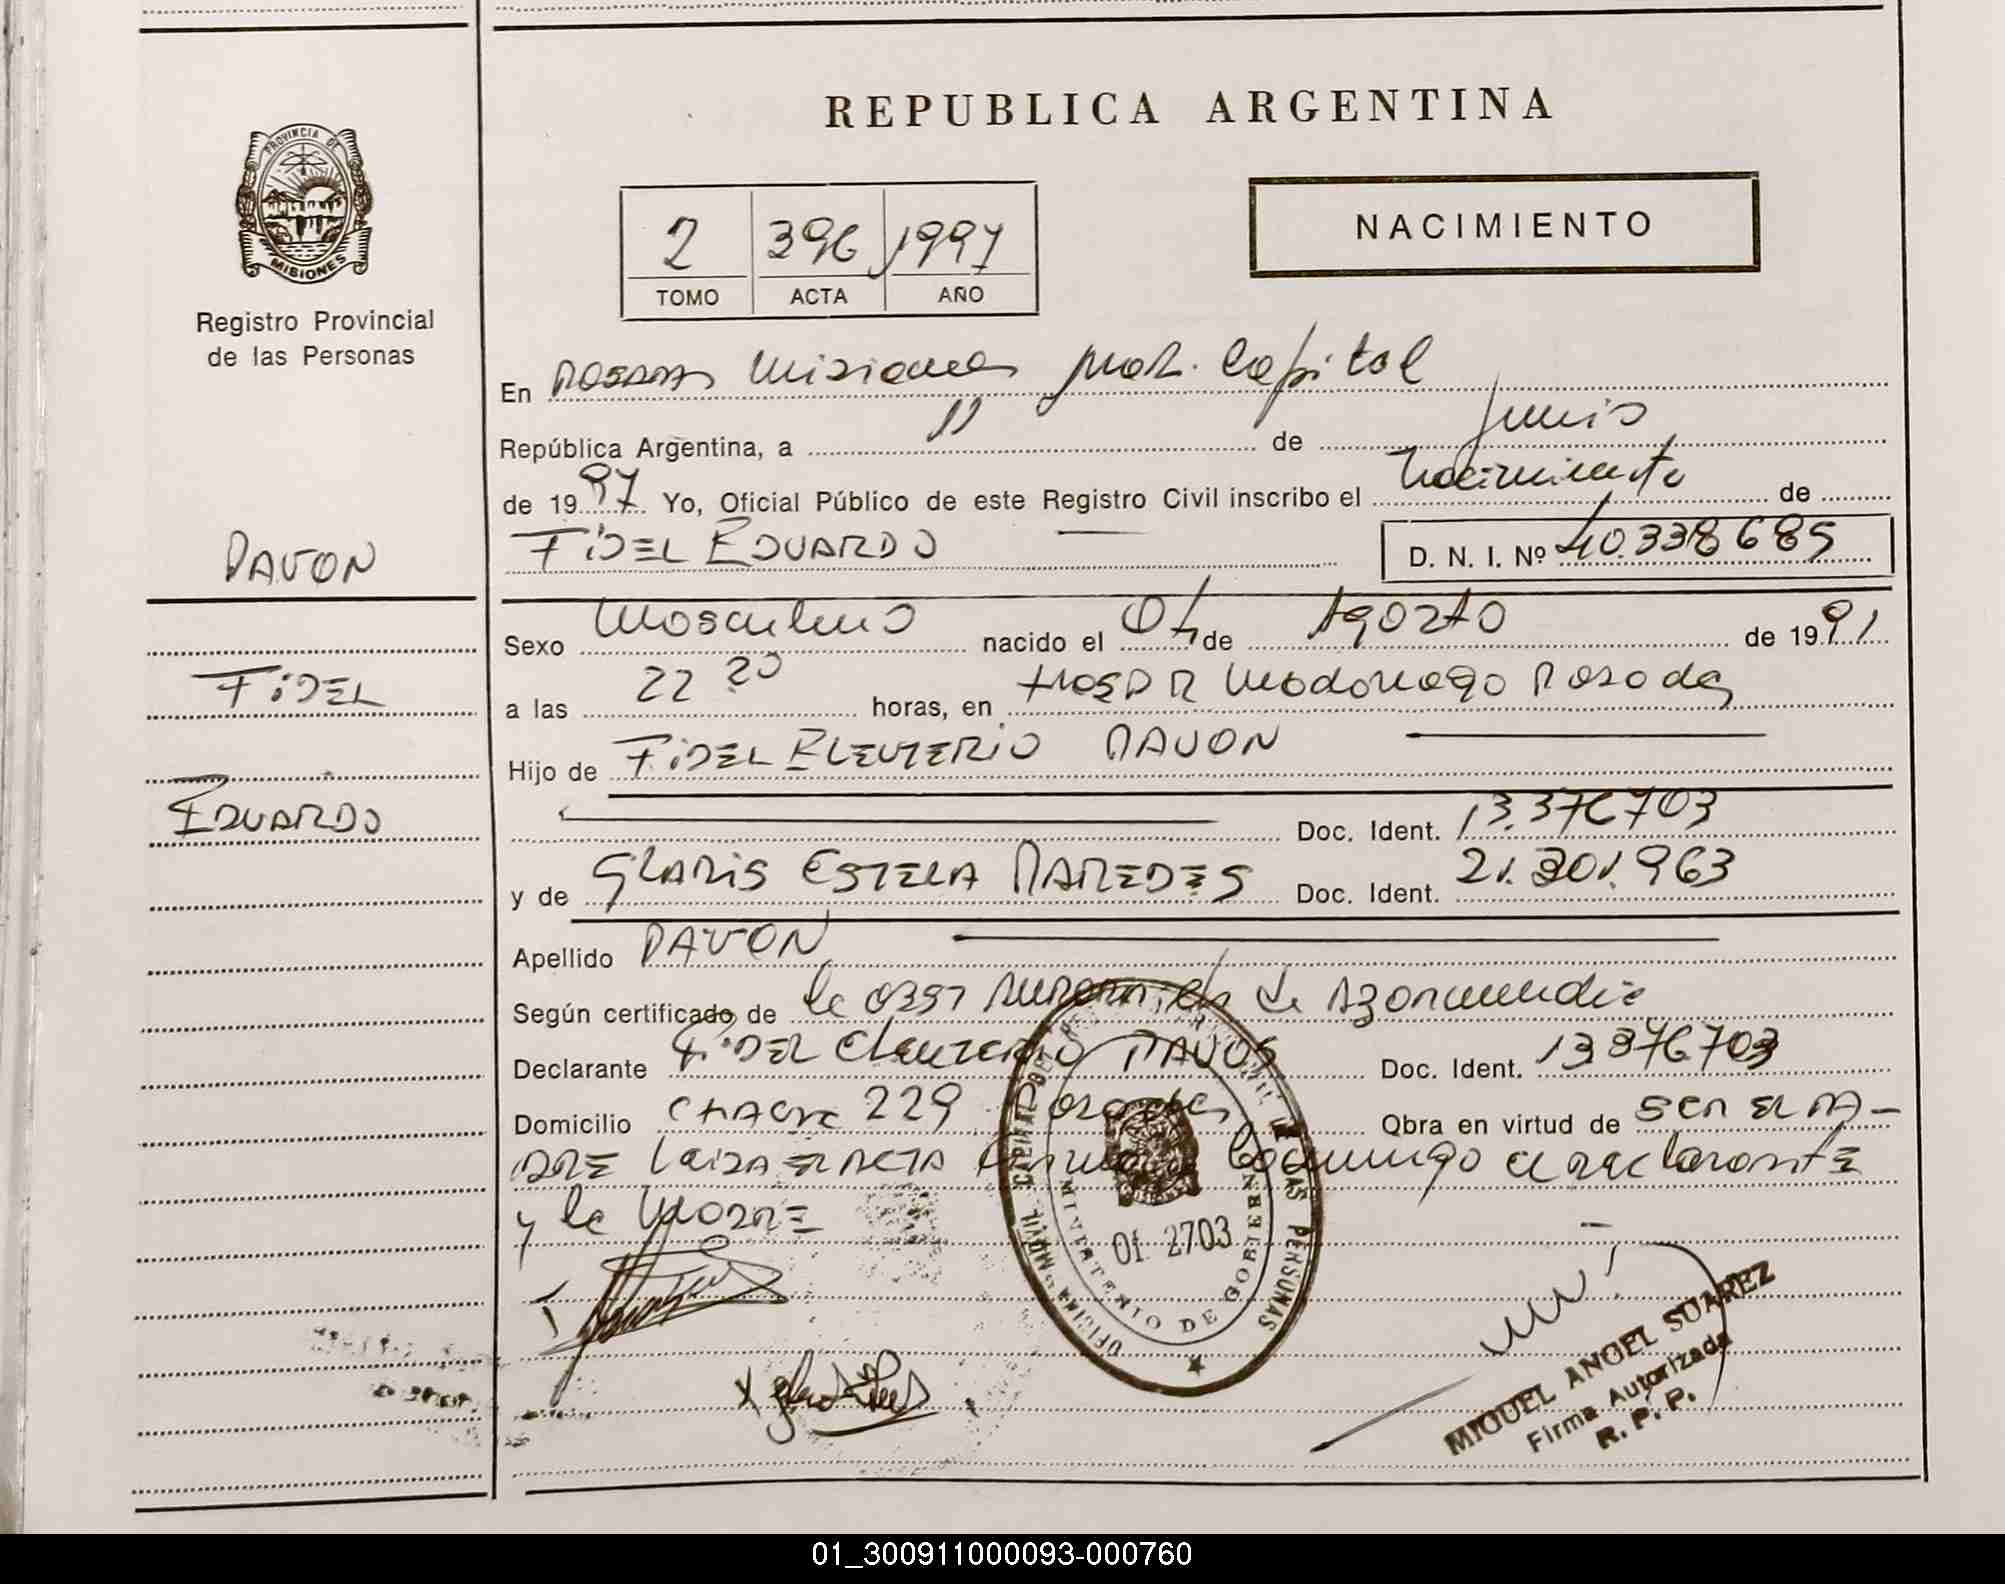 REPUBLICA ARGENTINA
PROVINCIA DE
MISIONES
Registro Provincial
de las Personas
NACIMIENTO
2 396 1997
TOMO ACTA AÑO
En Posadas Misiones Capital
República Argentina, a 11 de Junio
de 1997 Yo, Oficial Público de este Registro Civil inscribo el nacimiento de
FIDEL EDUARDO D. N. I. Nº 40.338685
PAVON
FIDEL
EDUARDO
Sexo Masculino nacido el 04 de Agosto de 1991
a las 22 20 horas, en Hosp R Madariaga Posadas
Hijo de FIDEL ELEUTERIO PAVON
Doc. Ident. 13.376703
y de GLADIS ESTELA PAREDES Doc. Ident. 21.301.963
Apellido PAVON
Según certificado de de
Declarante FIDEL Eleuterio PAVON Doc. Ident. 13376703
Domicilio CHACRA 229 Posadas Obra en virtud de SER EL PA-
DRE Leida EL ACTA conmigo el declarante
y la MADRE
OFICINA MOVIL CAPITAL DE LAS PERSONAS
MINISTERIO DE GOBIERNO
01 2703
MIGUEL ANGEL SUAREZ
Firma Autorizada
R. P. P.
01_300911000093-000760